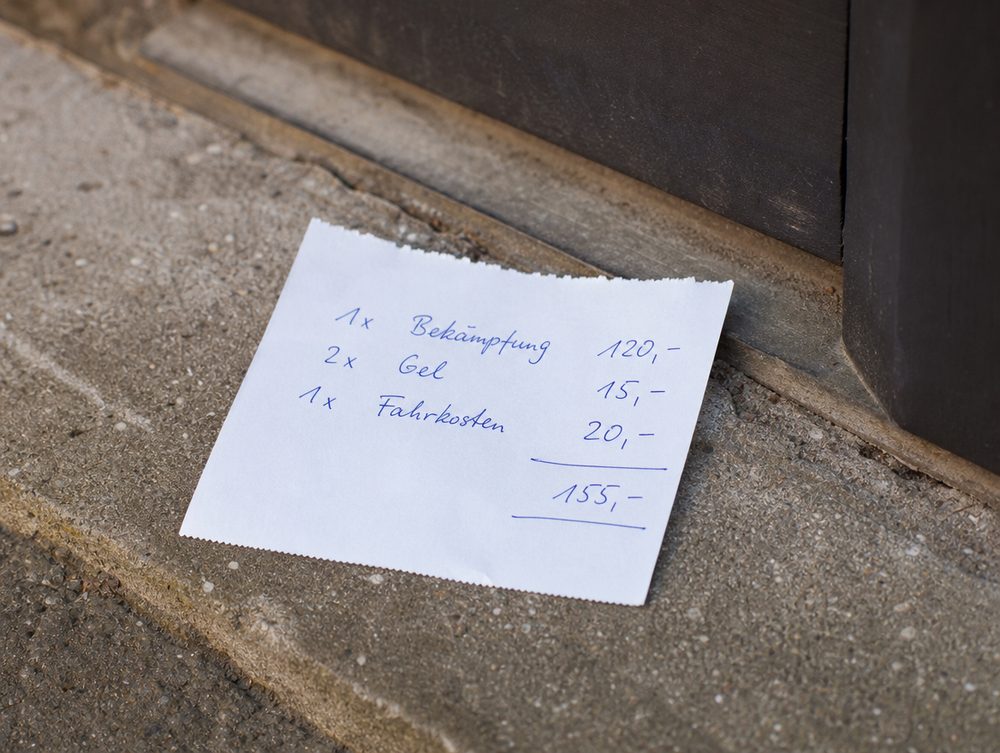 1x Bekämpfung 120,-
2x Gel 15,-
1x Fahrkosten 20,-
155,-